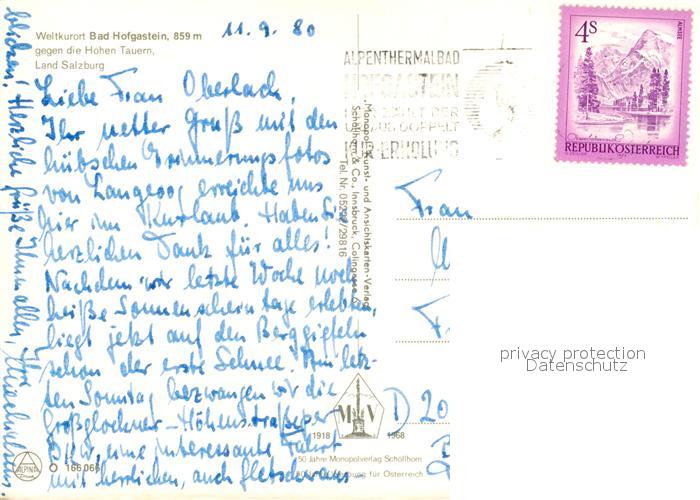 Weltkurort Bad Hofgastein, 859 m
gegen die Hohen Tauern,
Land Salzburg
11.9.80
Liebe Frau Oberlach,
Ihr netter Gruß mit den
hübschen Erinnerungsfotos
von Langeoog erreichte uns
hier im Kurlaub. Haben Sie
herzlichen Dank für alles!
Nachdem wir letzte Woche noch
heiße Sonnenschein tage erlebten,
liegt jetzt auf den Berggipfeln
schon der erste Schnee. Am letz-
ten Sonntag bezwangen wir die
Großglockner-Höhenstraße per
BMW, eine interessante Fahrt
mit herrlichen, auch Gletscheraus-
blicken! Herzliche Grüße Ihnen allen, Ihre
ALPINA
O 166 066
1918 MV 1968
50 Jahre Monopolverlag Schöllhorn
für Österreich
"Monopol" Kunst- und Ansichtskarten-Verlag
Schöllhorn & Co., Innsbruck, Colingasse
Tel. Nr. 05222/29816
ALPENTHERMALBAD
HOFGASTEIN
DOPPELT
ERHOLUNG
4S
ALMSEE
REPUBLIK ÖSTERREICH
Frau
D 20
privacy protection
Datenschutz